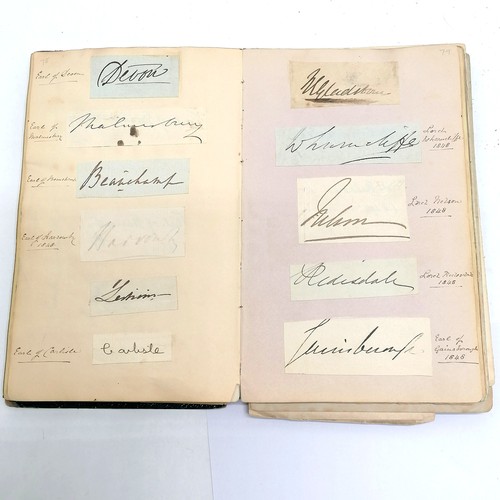 Earl of Devon
Devon
Earl of Malmesbury
Malmesbury
Earl of Beauchamp
Beauchamp
Earl of Harrowby
1848
Harrowby
Earl of Carlisle
Carlisle
WGladstone
Wharncliffe
Lord
Wharncliffe
1848
Nelson
Lord Nelson
1848
Redesdale
Lord Redesdale
1848
Gainsborough
Earl of
Gainsborough
1848